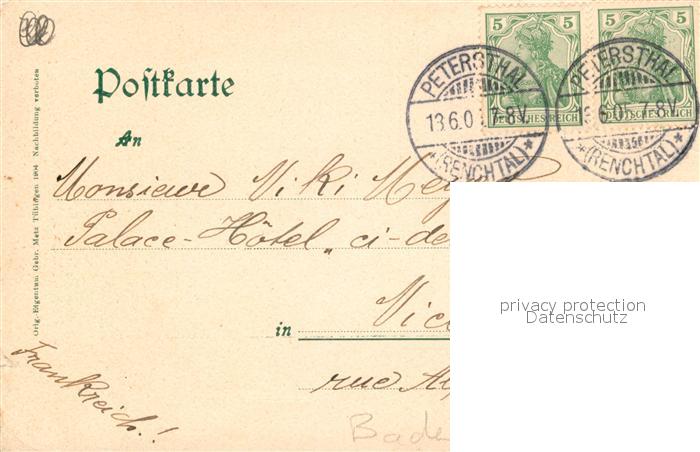 Postkarte
An
Monsieur Viki Mey
Palace-Hôtel „ci-de
in
rue
Frankreich!
Baden
Orig.-Eigentum Gebr. Metz Tübingen 1904 Nachbildung verboten
5 5
DEUTSCHES REICH
5 5
DEUTSCHES REICH
PETERSTHAL
13.6.0 7-8V
*(RENCHTAL)*
PETERSTHAL
6.05. 7-8V
*(RENCHTAL)*
privacy protection
Datenschutz